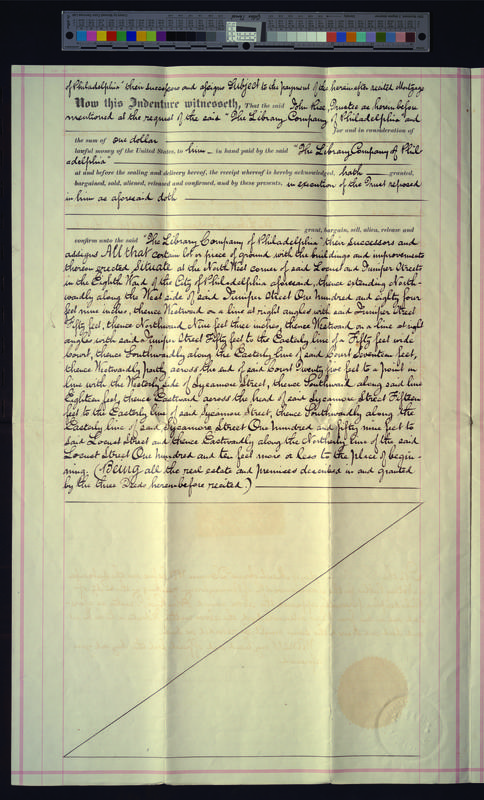 of Philadelphia" their successors and assigns Subject to the payment of the herein after recited Mortgage
Now this Indenture witnesseth, That the said John Rice, Trustee as herein before
mentioned at the request of the said "The Library Company of Philadelphia" and
for and in consideration of
the sum of one dollar
lawful money of the United States, to him in hand paid by the said "The Library Company of Phil
adelphia"
at and before the sealing and delivery hereof, the receipt whereof is hereby acknowledged, hath granted,
bargained, sold, aliened, released and confirmed, and by these presents, in execution of the Trust reposed
in him as aforesaid doth
grant, bargain, sell, alien, release and
confirm unto the said "The Library Company of Philadelphia" their successors and
assigns All that certain lot or piece of ground with the buildings and improvements
thereon erected Situate at the North West corner of said Locust and Juniper Streets
in the Eighth Ward of the City of Philadelphia aforesaid, thence extending North-
wardly along the West side of said Juniper Street One hundred and eighty four
feet nine inches, thence Westward on a line at right angles with said Juniper Street
Fifty feet, thence Northward Nine feet three inches, thence Westward on a line at right
angles with said Juniper Street Fifty feet to the Easterly line of a Fifty feet wide
Court, thence Southwardly along the Easterly line of said Court Seventeen feet,
thence Westwardly partly across the end of said Court Twenty five feet to a point in
line with the Westerly side of Sycamore Street, thence Southward along said line
Eighteen feet, thence Eastward across the head of said Sycamore Street Fifteen
feet to the Easterly line of said Sycamore Street, thence Southwardly along the
Easterly line of said Sycamore Street One hundred and fifty nine feet to
said Locust Street and thence Eastwardly along the Northerly line of the said
Locust Street One hundred and ten feet more or less to the place of begin-
ning. (Being all the real estate and premises described in and granted
by the three Deeds herein before recited.)